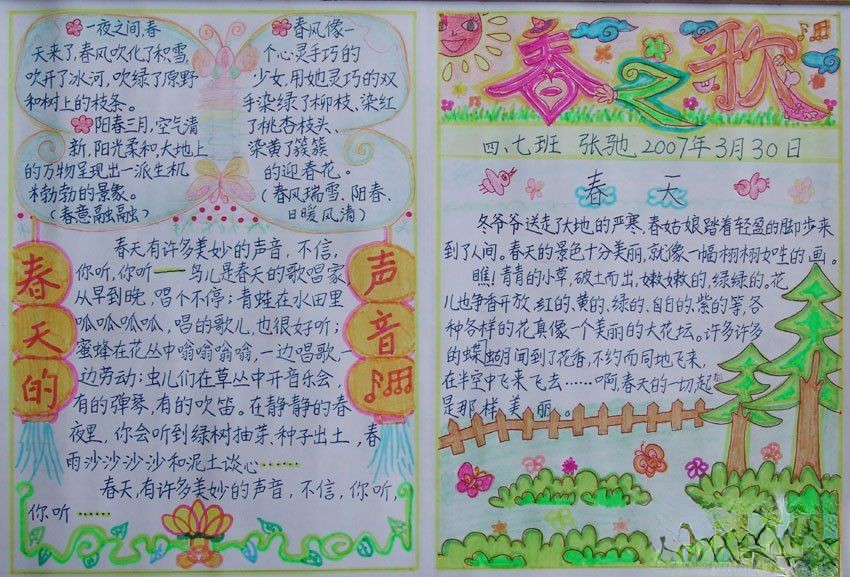 一夜之间,春
天来了,春风吹化了积雪,
吹开了冰河,吹绿了原野
和树上的枝条。
阳春三月,空气清
新,阳光柔和,大地上
的万物呈现出一派生机
勃勃的景象。
(春意融融)
春风像一
个心灵手巧的
少女,用她灵巧的双
手染绿了柳枝、染红
了桃杏枝头、
染黄了簇簇
的迎春花。
(春风瑞雪、阳春、
日暖风清)
春天的
声音
春天有许多美妙的声音,不信,
你听,你听——鸟儿是春天的歌唱家,
从早到晚,唱个不停;青蛙在水田里
呱呱呱呱,唱的歌儿,也很好听;
蜜蜂在花丛中嗡嗡嗡嗡,一边唱歌,一
边劳动;虫儿们在草丛中开音乐会,
有的弹琴,有的吹笛。在静静的春
夜里,你会听到绿树抽芽,种子出土,春
雨沙沙沙沙和泥土谈心……
春天,有许多美妙的声音,不信,你听,
你听……
春之歌
四.七班 张驰 2007年3月30日
春天
冬爷爷送走了大地的严寒,春姑娘踏着轻盈的脚步来
到了人间。春天的景色十分美丽,就像一幅栩栩如生的画。
瞧!青青的小草,破土而出,嫩嫩的,绿绿的。花
儿也争香开放,红的、黄的、绿的、白的、紫的等,各
种各样的花真像一个美丽的大花坛。许多许多
的蝴间到了花香,不约而同地飞来,
在半空中飞来飞去……啊,春天的一切起
是那样美丽。